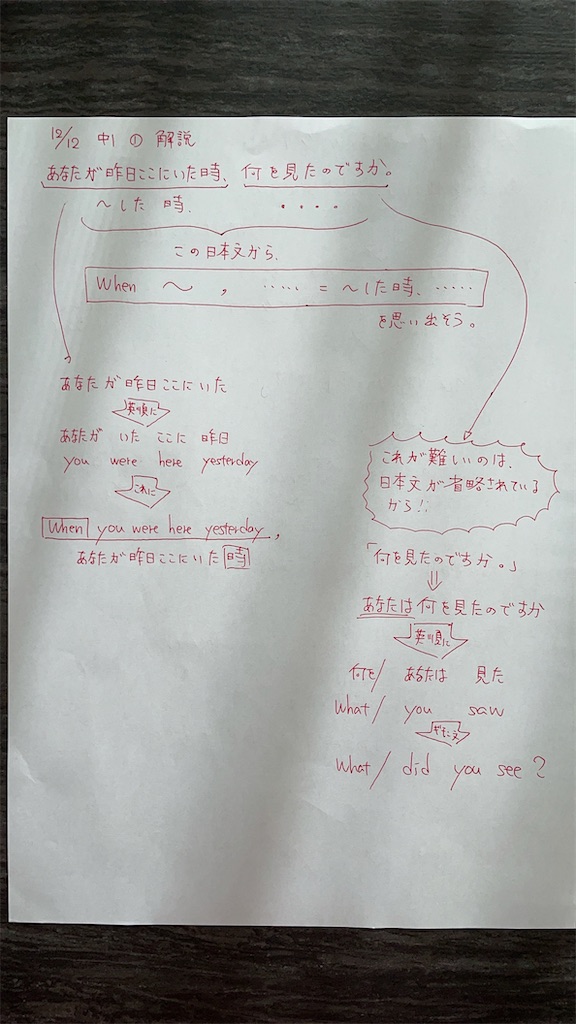 12/12 中1 ① 解説
あなたが昨日ここにいた時、何を見たのですか。
～した 時、 ・・・・
この日本文から、
When ～ , ‥‥ = ～した時、‥‥
を思い出そう。
あなたが昨日ここにいた
英順に
あなたが いた ここに 昨日
you were here yesterday
これに
When you were here yesterday,
あなたが昨日ここにいた時
これが難しいのは、
日本文が省略されている
から!!
「何を見たのですか。」
⇓
あなたは何を見たのですか
英順に
何を/ あなたは 見た
What/ you saw
ギモン文
What/ did you see?